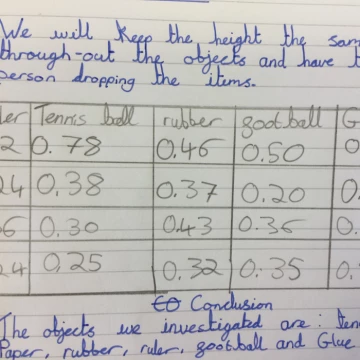 We will keep the height the sam
through-out the objects and have t
person dropping the items.
ler Tennis ball rubber gootball G
2 0.78 0.46 0.50 0.
24 0.38 0.37 0.20 0.
6 0.30 0.43 0.36 0.
24 0.25 0.32 0.35 0.
Conclusion
The objects we investigated are: tenn
Paper, rubber, ruler, gootball and Glue